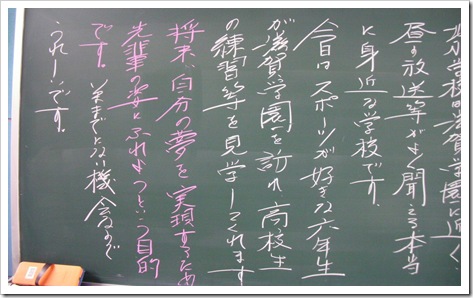 学校は滋賀学園に近く
昼の放送等がよく聞える本当
に身近な学校です。
今日はスポーツが好きな六年生
が滋賀学園を訪れ高校生
の練習等を見学してくれます
将来、自分の夢を実現するため
先輩の姿にふれようという目的
です。 とない機会なので
うれしいです。